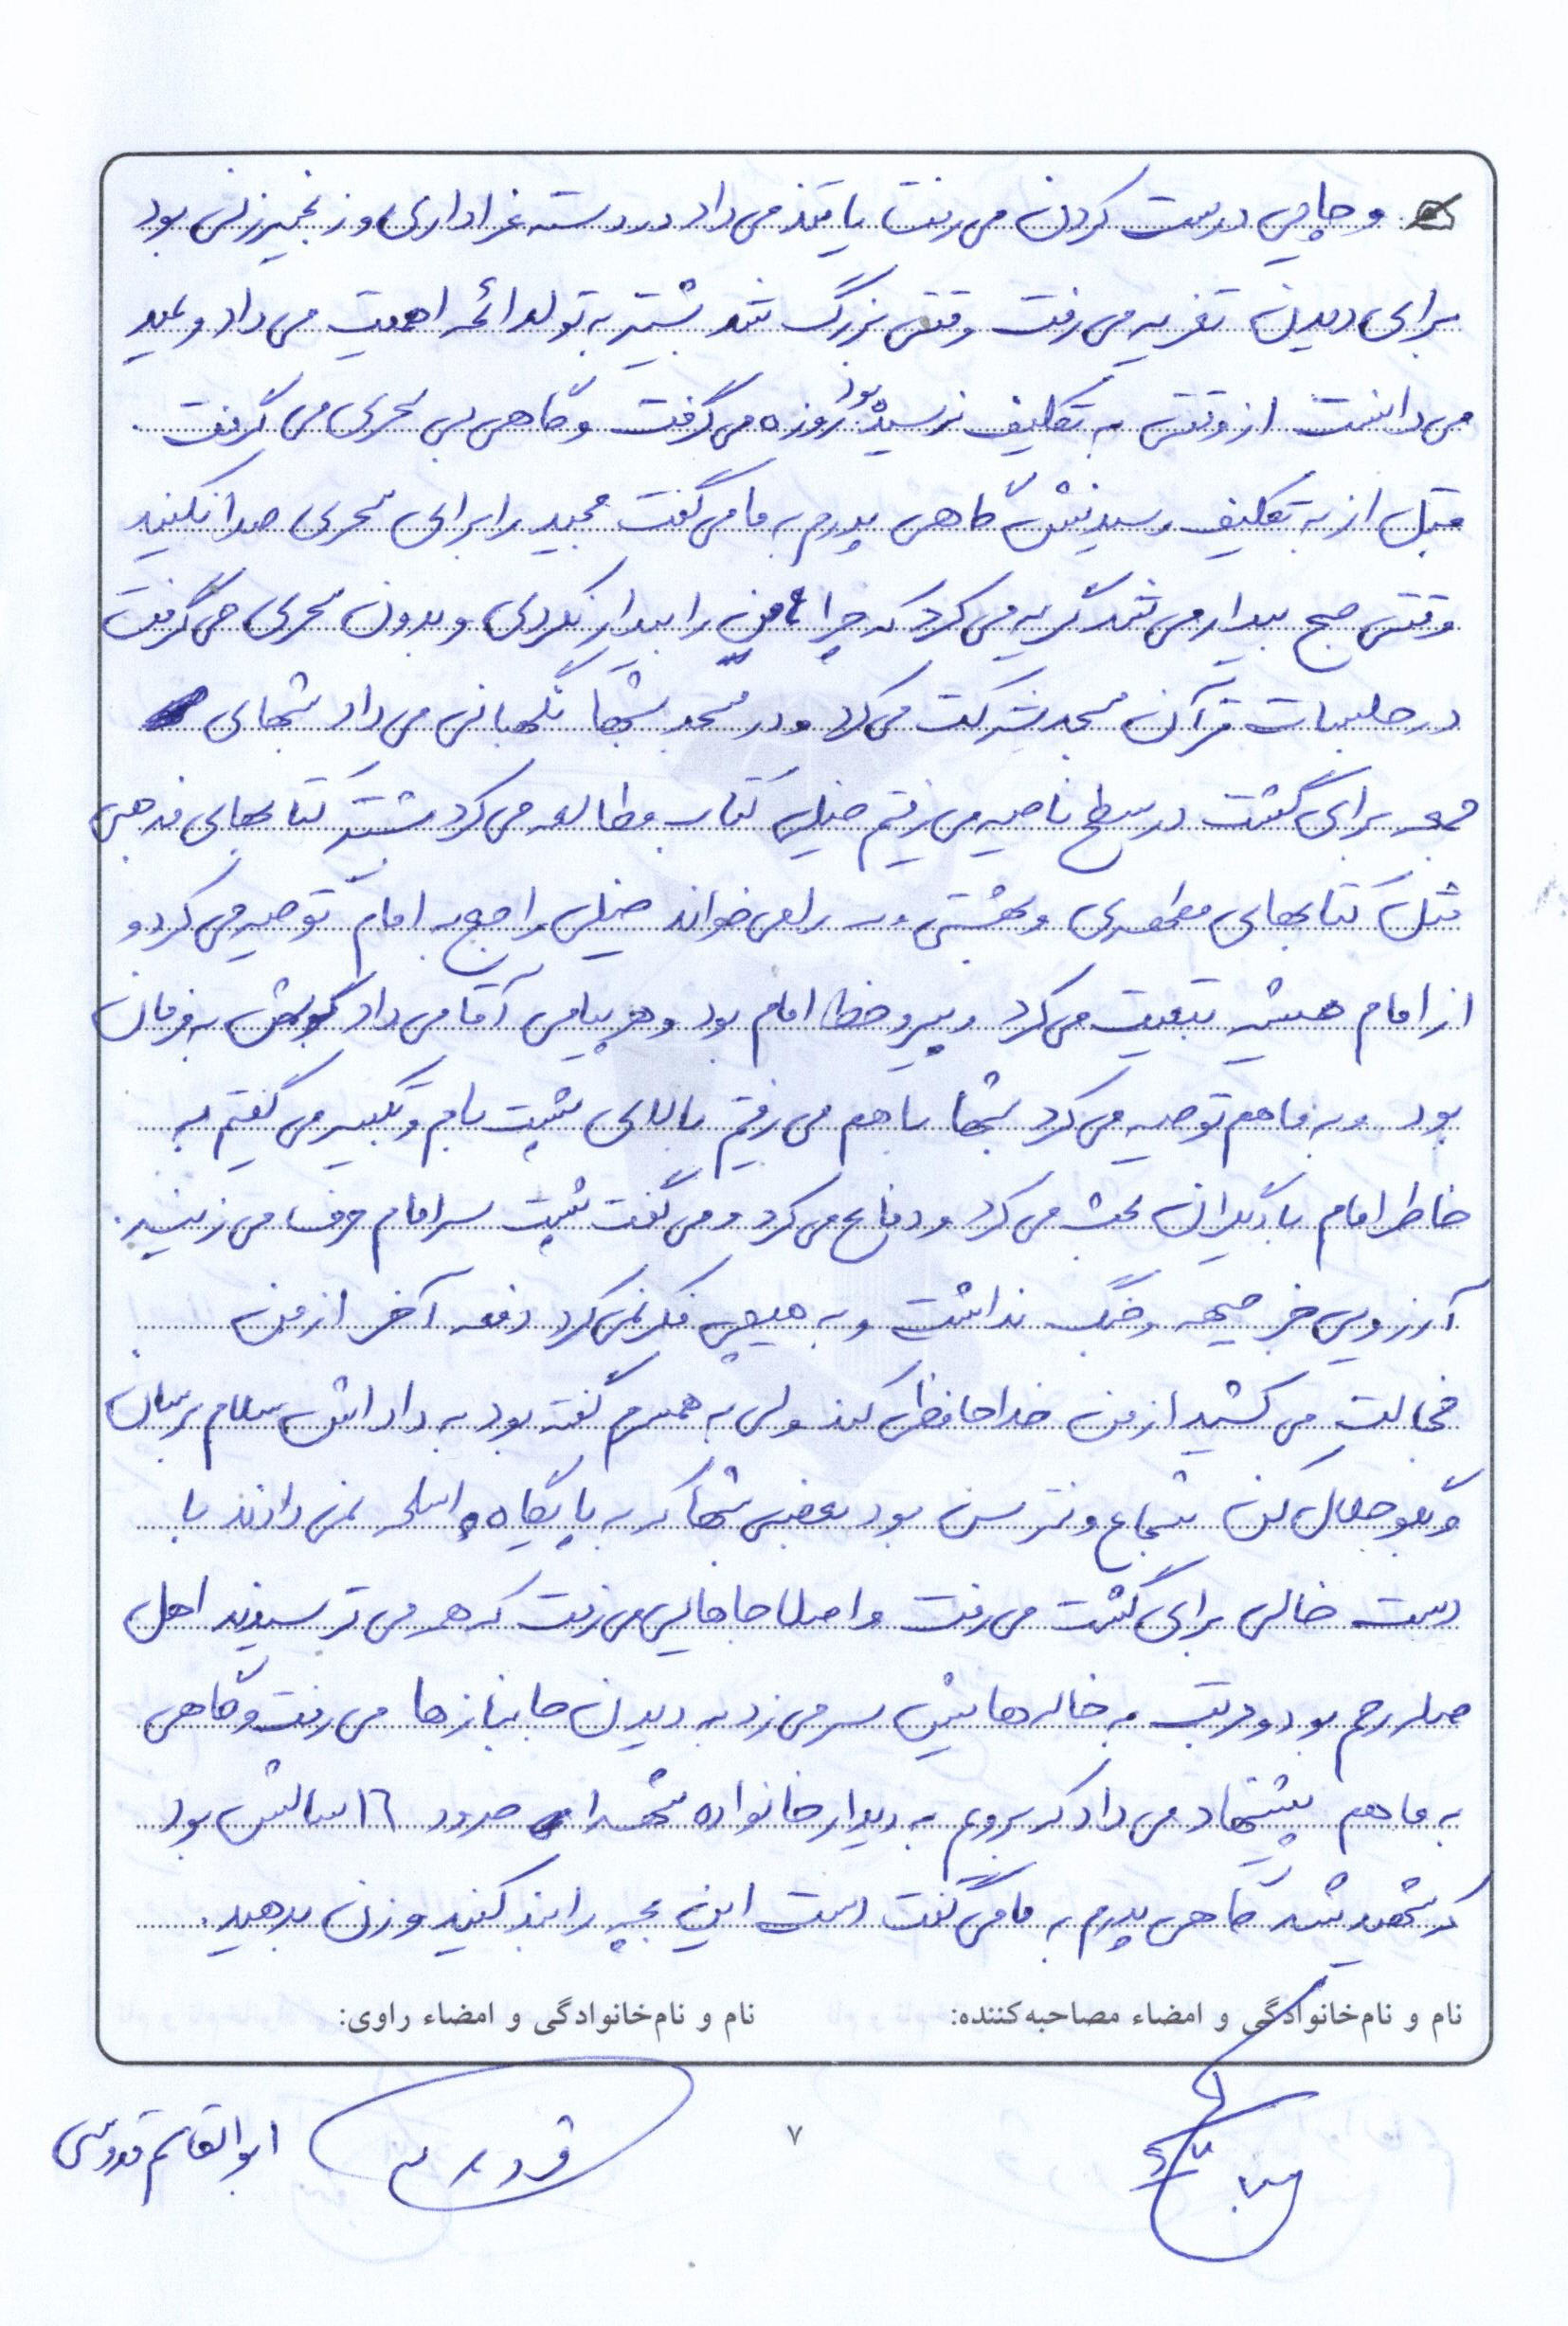 و چایی درست کردن می رفت یا قند می داد در دسته عزاداری و زنجیرزنی بود
برای دیدن تعزیه می رفت وقتی بزرگ شد بیشتر به تولد ائمه اهمیت می داد و عید
می دانست از وقتی به تکلیف نرسیده بود روزه می گرفت و گاهی بی سحری می گرفت.
قبل از به تکلیف رسیدنش گاهی پدرم به ما می گفت مجید را برای سحری صدا نکنید
وقتی صبح بیدار می شد گریه می کرد که چرا من را بیدار نکردی و بدون سحری می گرفت
در جلسات قرآن مسجد شرکت می کرد و در مسجد شبها نگهبانی می داد شبهای
جمعه برای گشت در سطح ناحیه می رفتیم خیلی کتاب مطالعه می کرد بیشتر کتابهای مذهبی
مثل کتابهای مطهری و بهشتی و... را می خواند خیلی راجع به امام توصیه می کرد و
از امام همیشه تبعیت می کرد و پیرو خط امام بود و هر پیامی آقا می داد گوش به فرمان
بود و به ما هم توصیه می کرد شبها با هم می رفتیم بالای پشت بام و تکبیر می گفتیم به
خاطر امام با دیگران بحث می کرد و دفاع می کرد و می گفت پشت سر امام حرف می زنید.
آرزویی جز جبهه و جنگ نداشت و به هیچی فکر نمی کرد دفعه آخر از من
خجالت می کشید از من خداحافظی کند ولی به همسرم گفته بود به داداش سلام برسان
و بگو حلال کن شجاع و نترس بود بعضی شبها که به پایگاه اسلحه نمی دادند با
دست خالی برای گشت می رفت و اصلا جاهایی می رفت که همه می ترسیدند اهل
صله رحم بود و مرتب به خاله هایش سر می زد به دیدن جانبازها می رفت و گاهی
به ما هم پیشنهاد می داد که برویم به دیدار خانواده شهدا حدود ۱۶ سالش بود
که شهید شد گاهی پدرم به ما می گفت دست این بچه را بند کنید و زن بدهید.
نام و نام‌خانوادگی و امضاء مصاحبه‌کننده: نام و نام‌خانوادگی و امضاء راوی:
ابوالقاسم قدوسی
۷